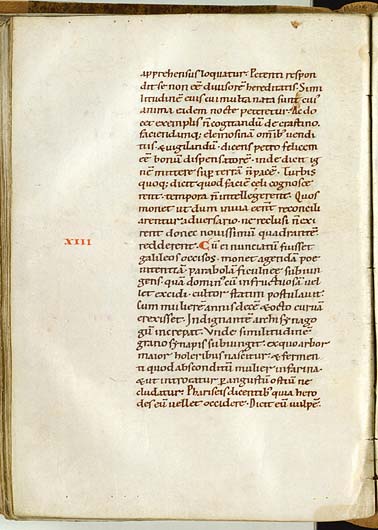 apprehensus loquatur. Petenti respon
dit se non eē diuisorē hereditatis. Simi
litudinē eius cui multa nata sunt cuiꝰ
anima eadem nocte peteretur. Ac do
cet exemplis ñ cogitandū de crastino.
faciendamq; elemosinā omīb; uendi
tis & uigilandū. dicens petro felicem
eē bonū dispensatorē. inde dicit ig
nē mittere sup terrā ñ pacē. Turbis
quoq; dicit quod faciē celi cognosce
rent. tempora ñ intellegerent. Quos
monet ut dum in uia eent reconcili
arentur aduersario. ne reclusi ñ exi
rent donec nouissimum quadrantē
XIII
redderent. Cū ei nunciatū fuisset
galileos occisos. monet agendā poe
nitentiā. parabolā ficulneę subiun
gens. quā dominꝰ cū infructuosā uel
let excidi. cultor statim postulauit.
cum mulierē annis decē & octo curuā
erexisset. Indignantē archisynago
gū increpat. Unde similitudinē
grano synapis subiungit. ex quo arbor
maior holeribus nascetur. & fermen
ti quod absconditū mulier in farina.
& ut introeatur p angustū ostiū ne
cludatur. Phariseis dicentibꝰ quia hero
des eū uellet occidere. Dicit eū uulpē.